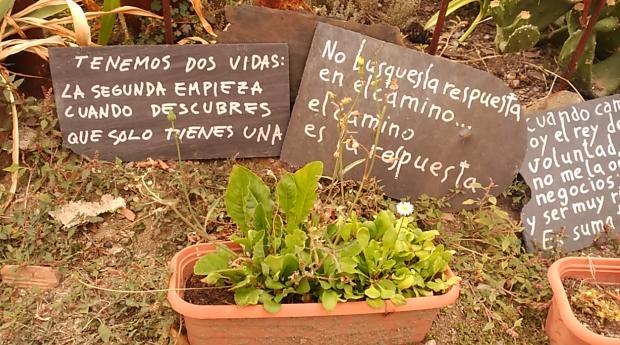 TENEMOS DOS VIDAS:
LA SEGUNDA EMPIEZA
CUANDO DESCUBRES
QUE SOLO TIENES UNA
No busques la respuesta
en el camino...
el camino
es la respuesta
cuando cam
oy el rey de
voluntad,
no me la o
negocios.
y ser muy ri
En suma